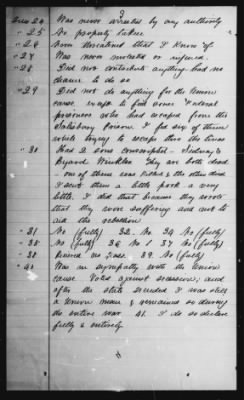 9
Ques 24 Was never arrested by any authority
" 25 No property taken
" 26 None threatened that I know of
" 27 Was never molested or injured.
" 28 Did not contribute anything had no
chance to do so
" 29 Did not do anything for the Union
cause, except to feed some Federal
prisoners who had escaped from the
Salisbury prison. I fed six of them
while trying to escape thro the lines
" 30 Had 2 sons conscripted - Sidney &
Byard Winkler They are both dead
- one of them was killed & the other died
I sent them a little pork a very
little. I did that because they wrote
that they were suffering and not to
aid the rebellion
" 31 No (fully) 32. No 34 No (fully)
" 35 No (fully) 36 No / 37 No (fully)
" 38 no pass. 39. No (fully)
" 40 Was in sympathy with the Union
cause Voted against secession; and
after the state seceded I was still
a Union man & remained so during
the entire war 41. I do so declare
fully & entirely.